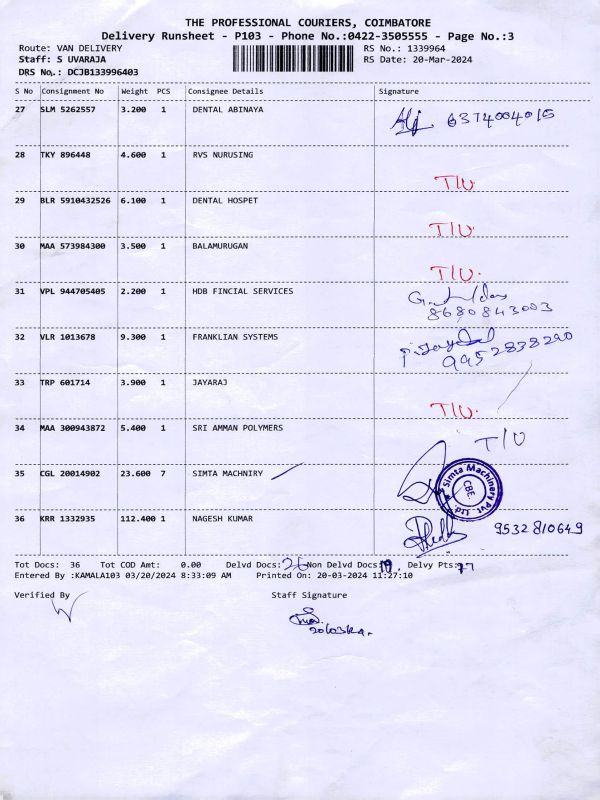 THE PROFESSIONAL COURIERS, COIMBATORE
Delivery Runsheet - P103 - Phone No.:0422-3505555 - Page No.:3
Route: VAN DELIVERY RS No.: 1339964
Staff: S UVARAJA RS Date: 20-Mar-2024
DRS No.: DCJB133996403
S No Consignment No Weight PCS Consignee Details Signature
27 SLM 5262557 3.200 1 DENTAL ABINAYA 6374004015
28 TKY 896448 4.600 1 RVS NURUSING T/U
29 BLR 5910432526 6.100 1 DENTAL HOSPET T/U
30 MAA 573984300 3.500 1 BALAMURUGAN T/U
31 VPL 944705405 2.200 1 HDB FINCIAL SERVICES 8680843003
32 VLR 1013678 9.300 1 FRANKLIAN SYSTEMS 9952838290
33 TRP 601714 3.900 1 JAYARAJ T/U
34 MAA 300943872 5.400 1 SRI AMMAN POLYMERS T/U
35 CGL 20014902 23.600 7 SIMTA MACHNIRY Simta Machinery Pvt Ltd. CBE.
36 KRR 1332935 112.400 1 NAGESH KUMAR 9532810649
Tot Docs: 36 Tot COD Amt: 0.00 Delvd Docs: 26 Non Delvd Docs: Delvy Pts:
Entered By :KAMALA103 03/20/2024 8:33:09 AM Printed On: 20-03-2024 11:27:10
Verified By Staff Signature